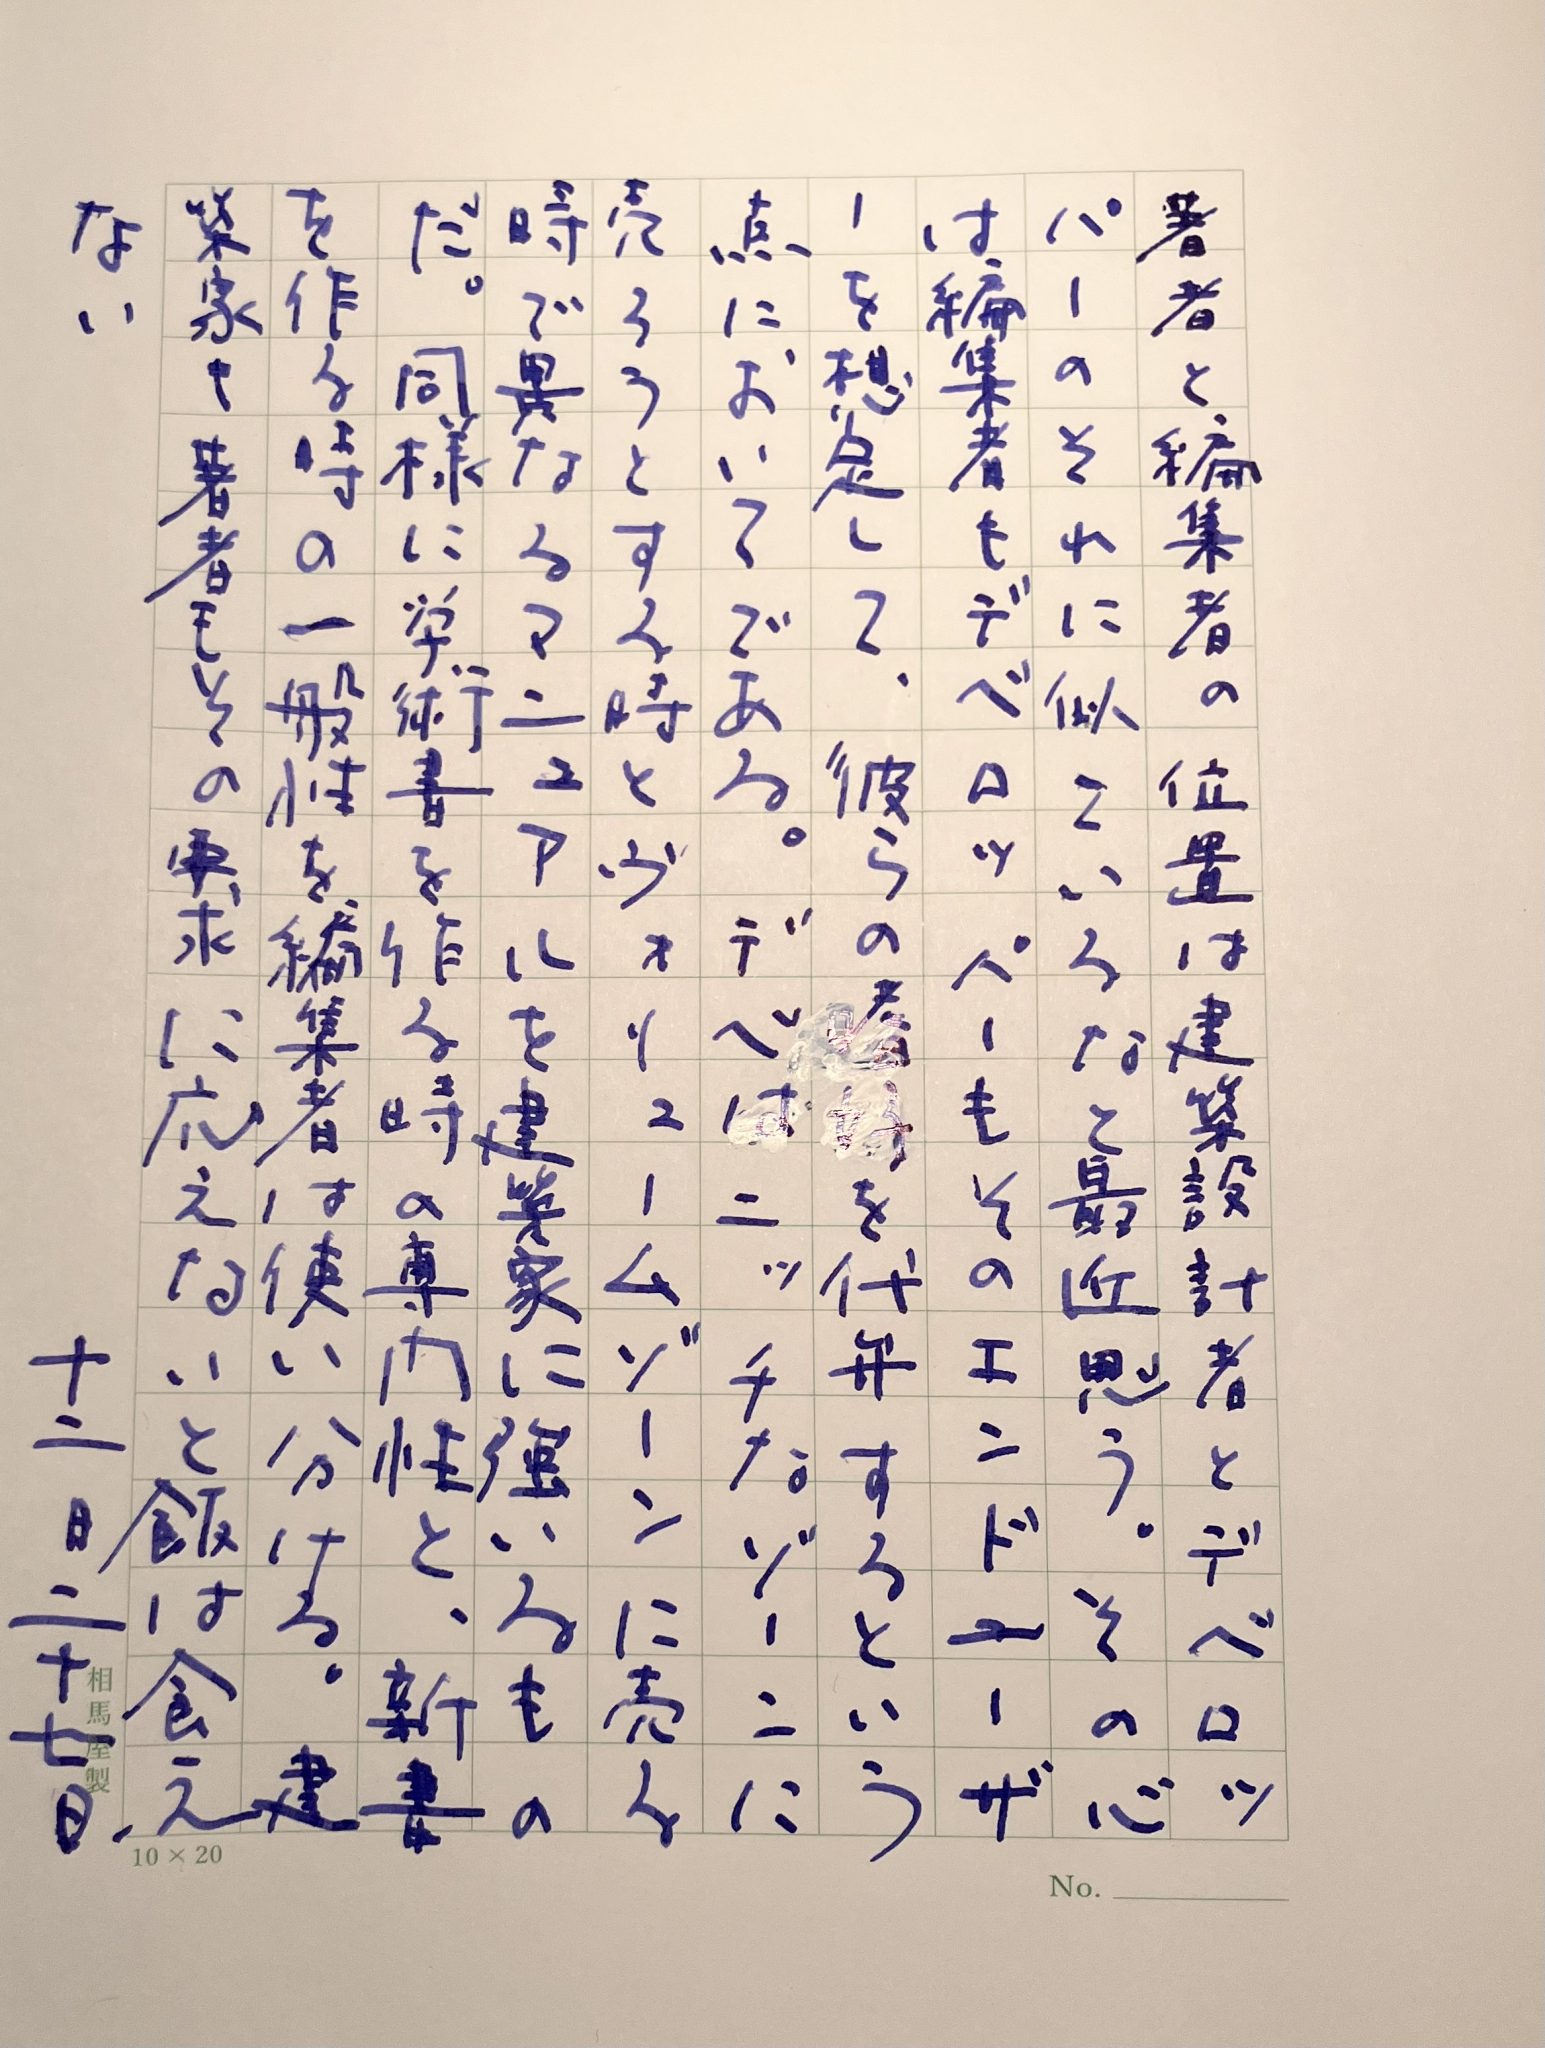 著者と編集者の位置は建築設計者とデベロッ
パーのそれに似ているなと最近思う。その心
は編集者もデベロッパーもそのエンドユーザ
ーを想定して、彼らの を代弁するという
点においてである。デベはニッチなゾーンに
売ろうとする時とヴォリュームゾーンに売る
時で異なるマニュアルを建築家に強いるもの
だ。同様に学術書を作る時の専門性と、新書
を作る時の一般性を編集者は使い分ける。建
築家も著者もその要求に応えないと飯は食え
ない
十二月二十七日、
相馬屋製
10×20
No.